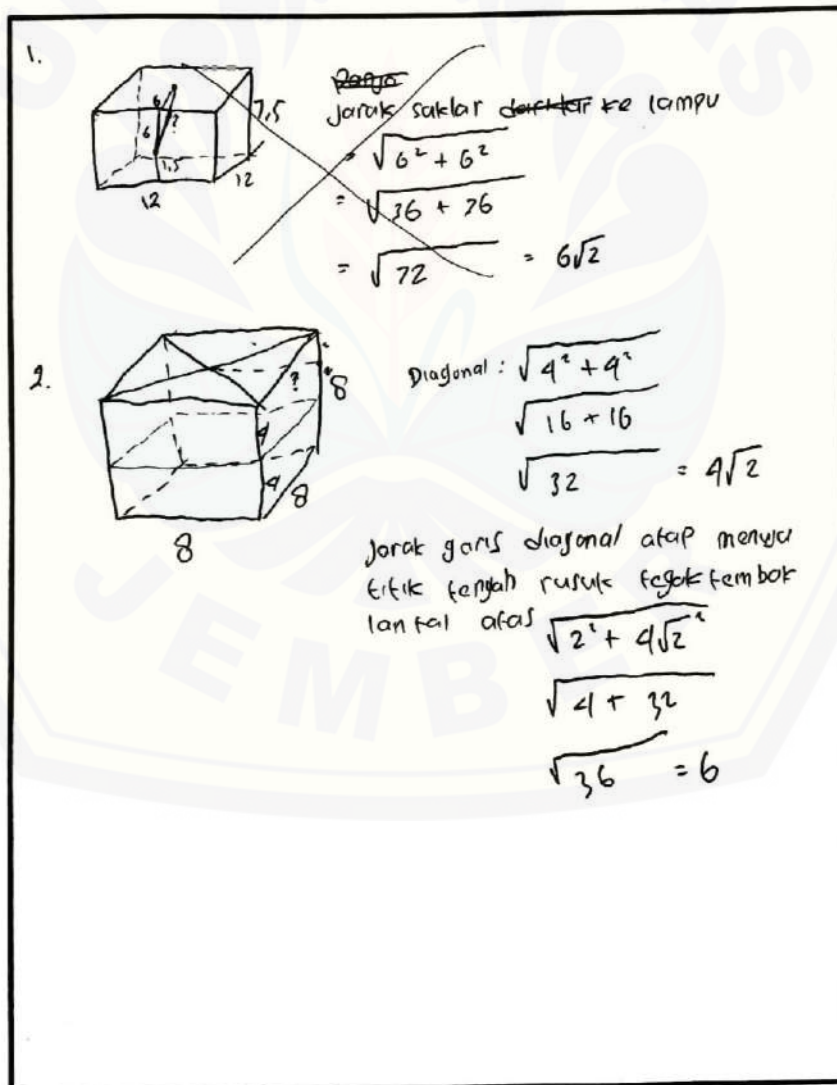 1.
6
6
?
1,5
7,5
12
12
Panja
Jarak saklar ke lampu
= √6² + 6²
= √36 + 36
= √72 = 6√2
2.
?
8
4
4
8
8
Diagonal : √4² + 4²
√16 + 16
√32 = 4√2
Jarak garis diagonal atap menuju
titik tengah rusuk tegak tembok
lantai atas √2² + 4√2²
√4 + 32
√36 = 6
JEMBER